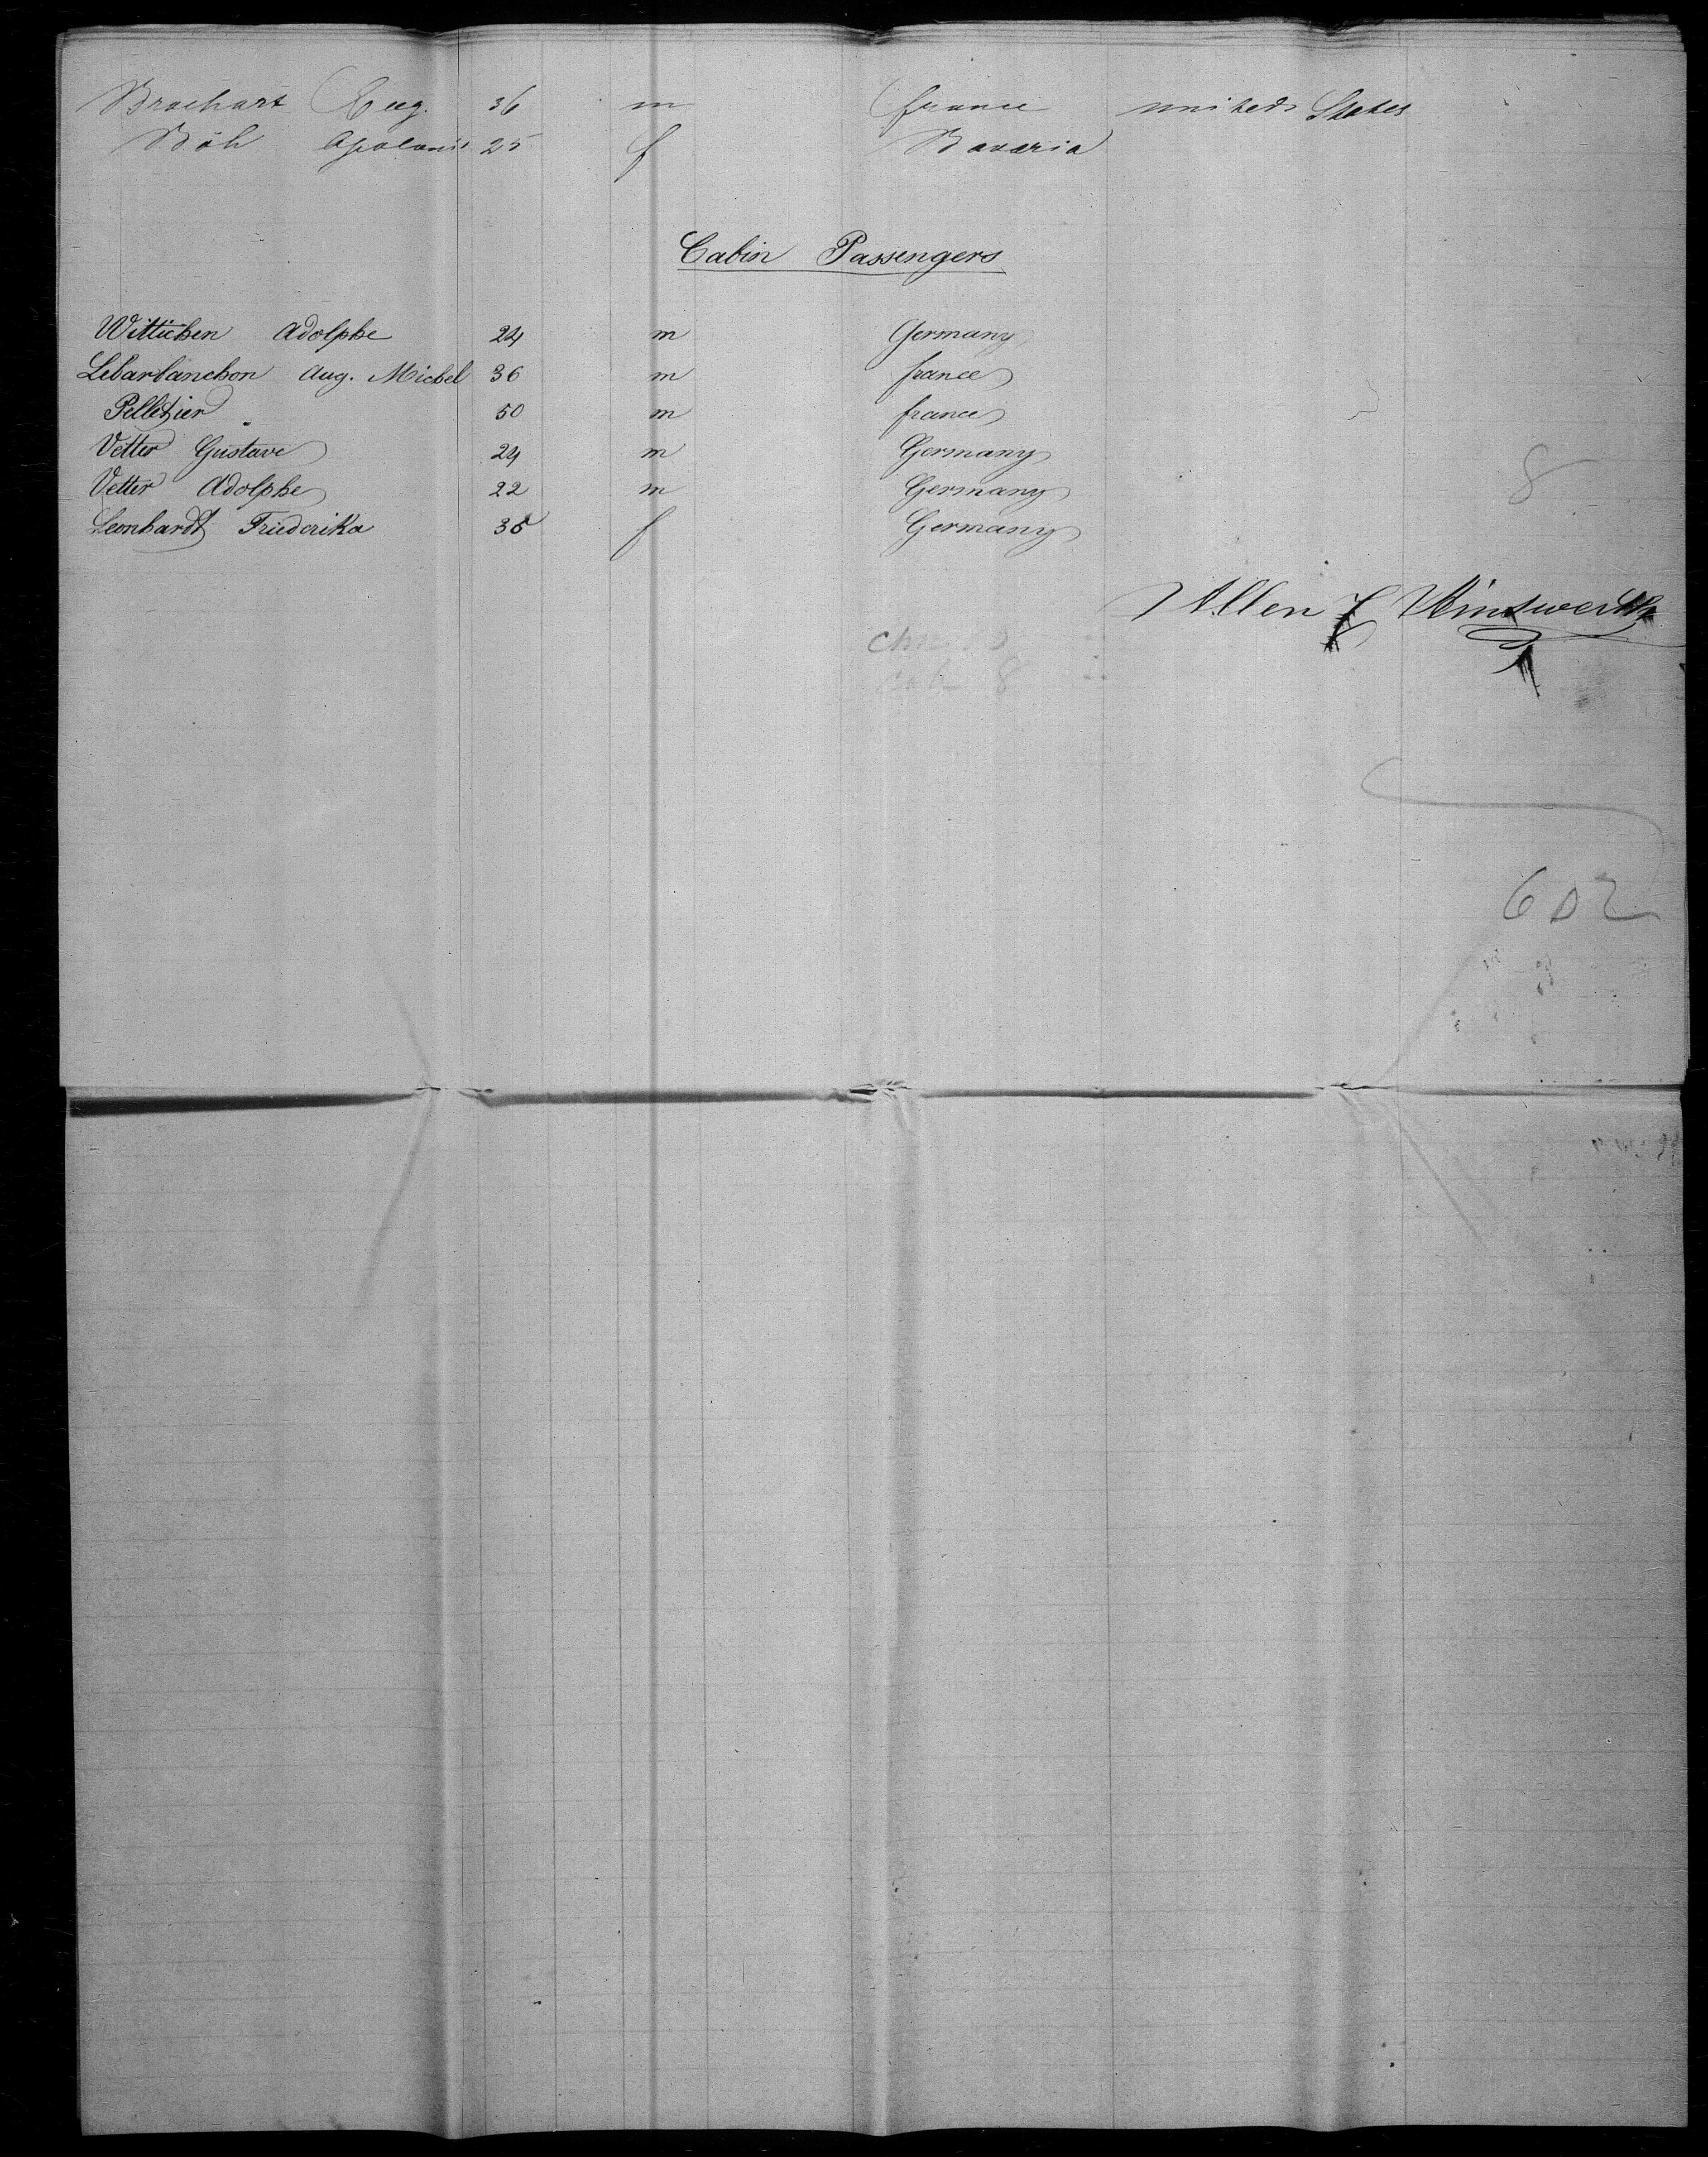 Brochart Eug. 36 m france united States
Böh Apoloni 25 f Bavaria
Cabin Passengers
Wittichen Adolphe 24 m Germany
Lebarbanchon Aug. Michel 36 m france
Pelletier 50 m france
Vetter Gustave 24 m Germany
Vetter Adolphe 22 m Germany
8
Leonhardt Friederika 36 f Germany
Allen
8
602